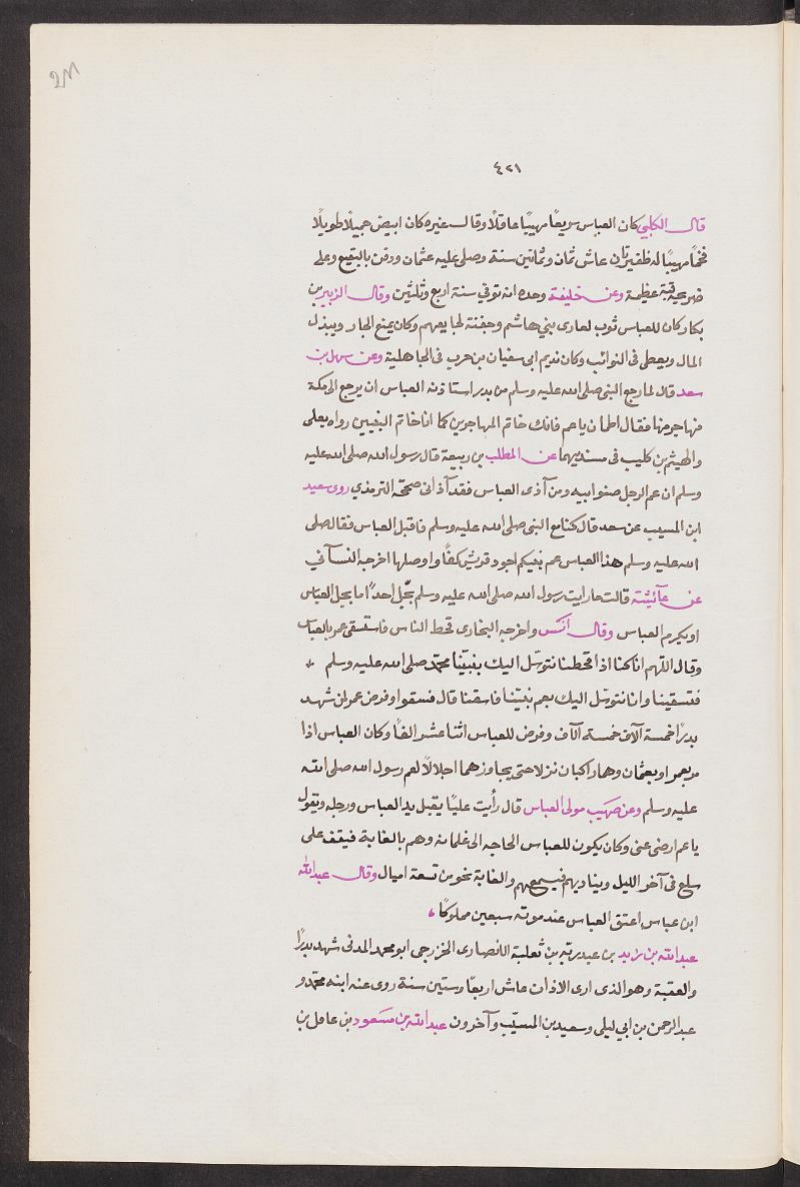 ٤٢١
قال الكلبي كان العباس سريعًا مهيبًا عاقلًا وقال غيره كان ابيض جميلًا طويلًا
فخمًا مهيبًا له ظفيرتان عاش ثمان وثمانين سنة وصلى عليه عثمان ودفن بالبقيع وعلى
ضريحه قبة عظيمة وعن خليفة وحده انه توفي سنة اربع وثلثين وقال الزبير بن
بكار كان للعباس ثوب لعارى بني هاشم وجفنة لجايعهم وكان يمنع الجار ويبذل
المال ويعطى فى النوائب وكان نديم ابى سفيان بن حرب فى الجاهلية وعن سهل بن
سعد قال لما رجع النبى صلى الله عليه وسلم من بدر استاذنه العباس ان يرجع الى مكة
مهاجر منها فقال اطمان ياعم فانك خاتم المهاجرين كما انا خاتم النبيين رواه يعلى
والهيثم بن كليب فى مسنديهما عن المطلب بن ربيعة قال رسول الله صلى الله عليه
وسلم ان عم الرجل صنو ابيه ومن آذى العباس فقد آذانى صححه الترمذي روى سعيد
ابن المسيب عن سعد قال كنا مع النبى صلى الله عليه وسلم فاقبل العباس فقال صلى
الله عليه وسلم هذا العباس عم نبيكم اجود قريش كفًا واوصلها اخرجه النسآئي
عن عآئيشة قالت ما رايت رسول الله صلى الله عليه وسلم يجّل احدًا ما يجل العبّاس
او يكرم العباس وقال انس واخرجه البخارى قحط الناس فاستسقى عمر بالعباس
وقال اللّهم انا كنا اذا قحطنا نتوسّل اليك بنبيّنا محمّد صلى الله عليه وسلم
فتسقينا وانا نتوسّل اليك بعم نبيّنا فاسقنا قال فسقوا وفرض عمر لمن شهد
بدرًا خمسة آلاف خمسة آلاف وفرض للعباس اثنا عشر الفًا وكان العباس اذا
مر بعمر او بعثمان وهما راكبان نزلا حتى يجاوزهما اجلالًا لعم رسول الله صلى الله
عليه وسلم وعن صهَيب مولى العباس قال رأيت عليًا يقبل يد العباس ورجله ويقول
ياعم ارضى عنى وكان يكون للعباس الحاجه الى غلمانه وهم بالغابة فيقف على
سلع فى آخر الليل ويناديهم فيسمعهم والغابة نحو من تسعة اميال وقال عبدالله
ابن عباس اعتق العباس عند موته سبعين مملوكًا
عبدالله بن زيد بن عبد ربه بن ثعلبة الانصارى الخزرجى ابو محمد المدنى شهد بدرًا
والعقبة وهو الذى ارى الاذان عاش اربعًا وستين سنة روى عنه ابنه محمّد و
عبدالرحمن بن ابي ليلى وسعيد بن المسيّب وآخرون عبدالله بن مسَعود بن عافل بن